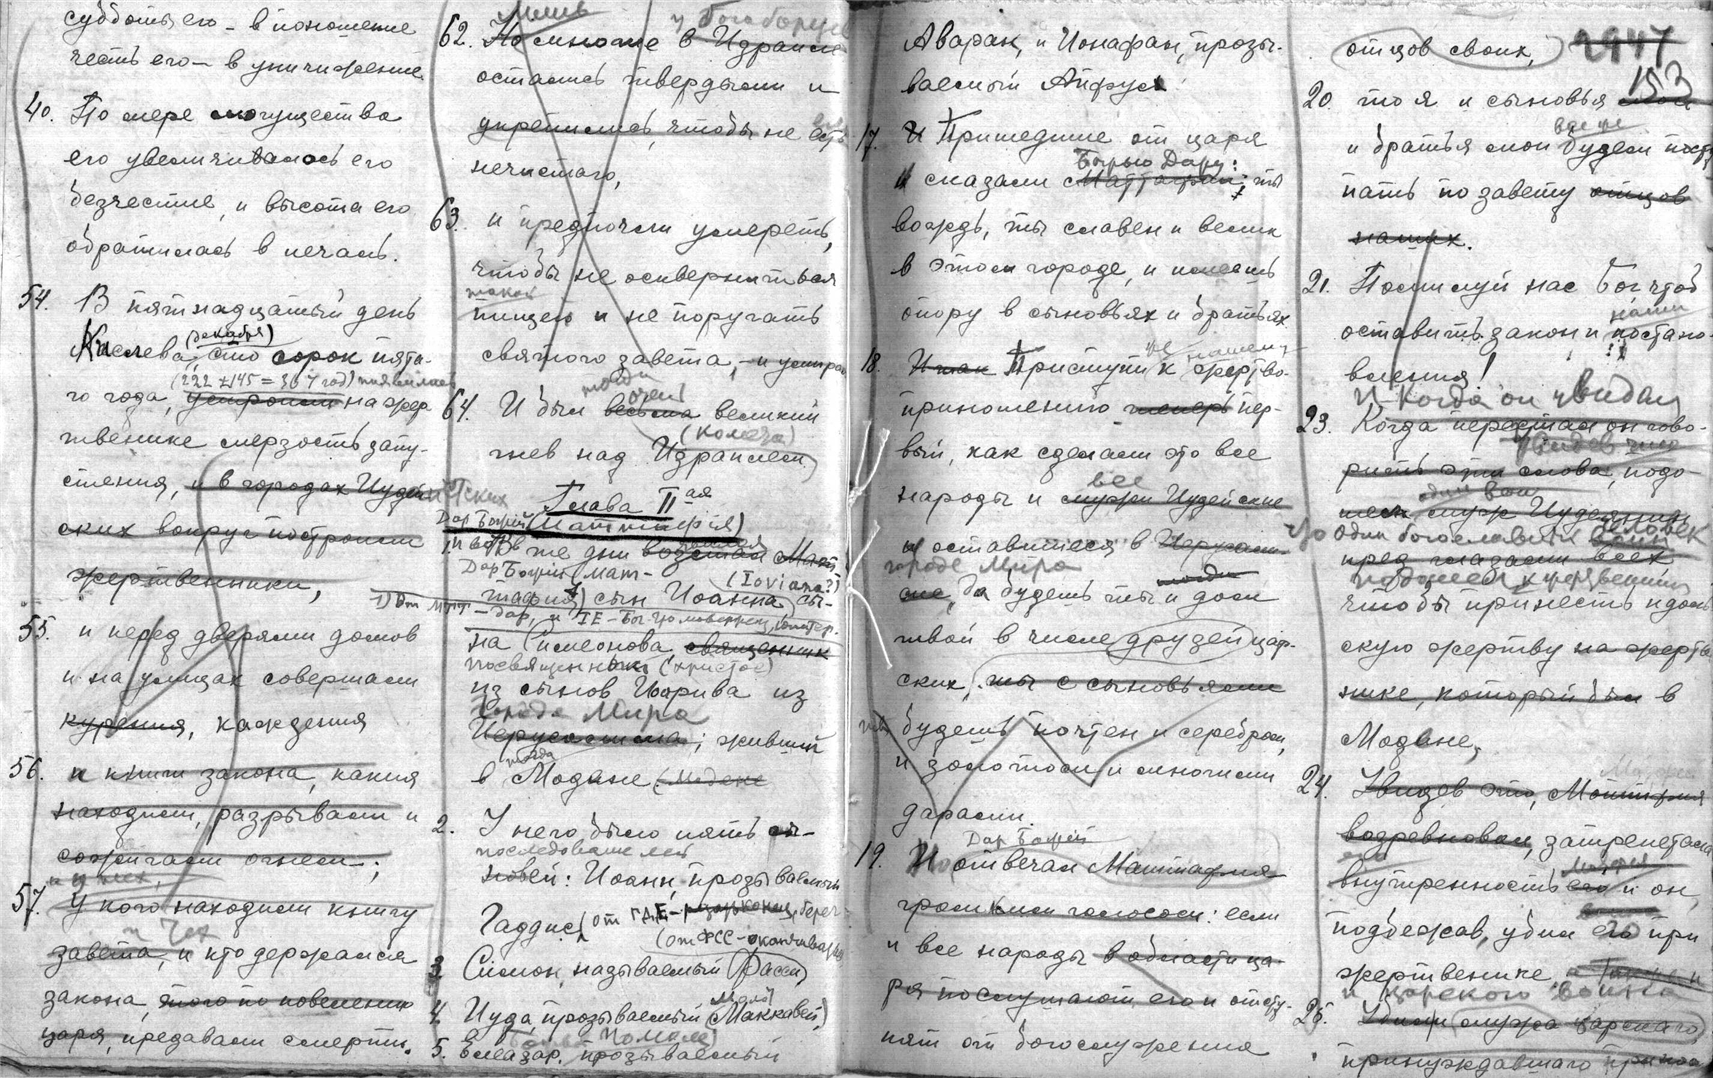 субботы его – в поношение
честь его – в уничижение.
40. По мере могущества
его увеличивалось его
безчестие, и высота его
обратилась в печаль.
54. В пятнадцатый день
(декабря)
Кислева, сто сорок пято-
(222 + 145 = 367 год) появилась
го года, устроили на жер
твенике мерзость запу-
стения, и в городах Иудей
ских вокруг построили
жертвенники,
55. и перед дверями домов
и на улицах совершали
курения, каждения
56. и книги закона, какия
находили, разрывали и
сожигали огнем;
и у них,
57. У кого находили книгу
и тех
завета, и кто держался
закона, того по повелению
царя, предавали смерти.
62. Но многие в Израиле
остались твердыми и
укрепились, чтобы не есть
нечистого,
63. и предпочли умереть,
чтобы не оскверниться
такой
пищей и не поругать
святого завета, – и умирали
тогда очень
64. И был весьма великий
(колена)
гнев над Израилем
Глава II ая
Дар Божий (Маттафия)
И вот В те дни возстал Матт
Дар Божий (Мат- (Ioviana?)
тафия) сын Иоанна, сы-
1) От МТТ – Дар, и IE – Бог
на Симеонова, священник
посвященник (христос)
из сынов Иоарива из
города Мира
Иерусалима; живший
тогда
в Модине
2. У него было пять сы-
последователей
новей: Иоанн прозываемый
Гаддис (от
(от ФСС – оканчивать
3. Симон, называемый Фасси,
4. Иуда, прозываемый (Маккавей,)
5. Елеазар, прозываемый
Аваран, и Ионафан, прозы-
ваемый Апфус
17. И Пришедшие от царя
Божью Дару:
и сказали Маттафии: ты
вождь, ты славен и велик
в этом городе, и имеешь
опору в сыновьях и братьях
же нашему
18. Итак Приступи к жертво-
приношению теперь пер-
вый, как сделали это все
все
народы и мужи Иудейские
и оставшиеся в Иерусали-
городе Мира
ме, да будешь ты и дом
твой в числе друзей цар-
ских, ты с сыновьями
будешь почтен и серебром,
и золотом и многими
дарами.
Дар Божий
19. И отвечал Маттафия
громким голосом: если
и все народы в области ца-
ря послушают его и отсту-
пят от богослужения
отцов своих,
2947
153
20. то я и сыновья мои
все же
и братья мои будем посту
пать по завету отцов
наших.
21. Помилуй нас Бог, чтоб
наши
оставить закон и постано-
вления!
И Когда он увидел
23. Когда перестал он гово-
увидев что
рить эти слова, подо-
один воин
шел муж Иудеянин
что один богославный человек
пред глазами всех
подошел к жертвеннику
чтобы принести идоль
скую жертву на жертве
нике, который был в
Модине,
24. Увидев это, Маттафия
возревновал, затрепетала
внутренность его и он,
подбежав, убил его при
жертвенике,
и царского воина
25. Убили (мужа царского),
принуждавшего прино